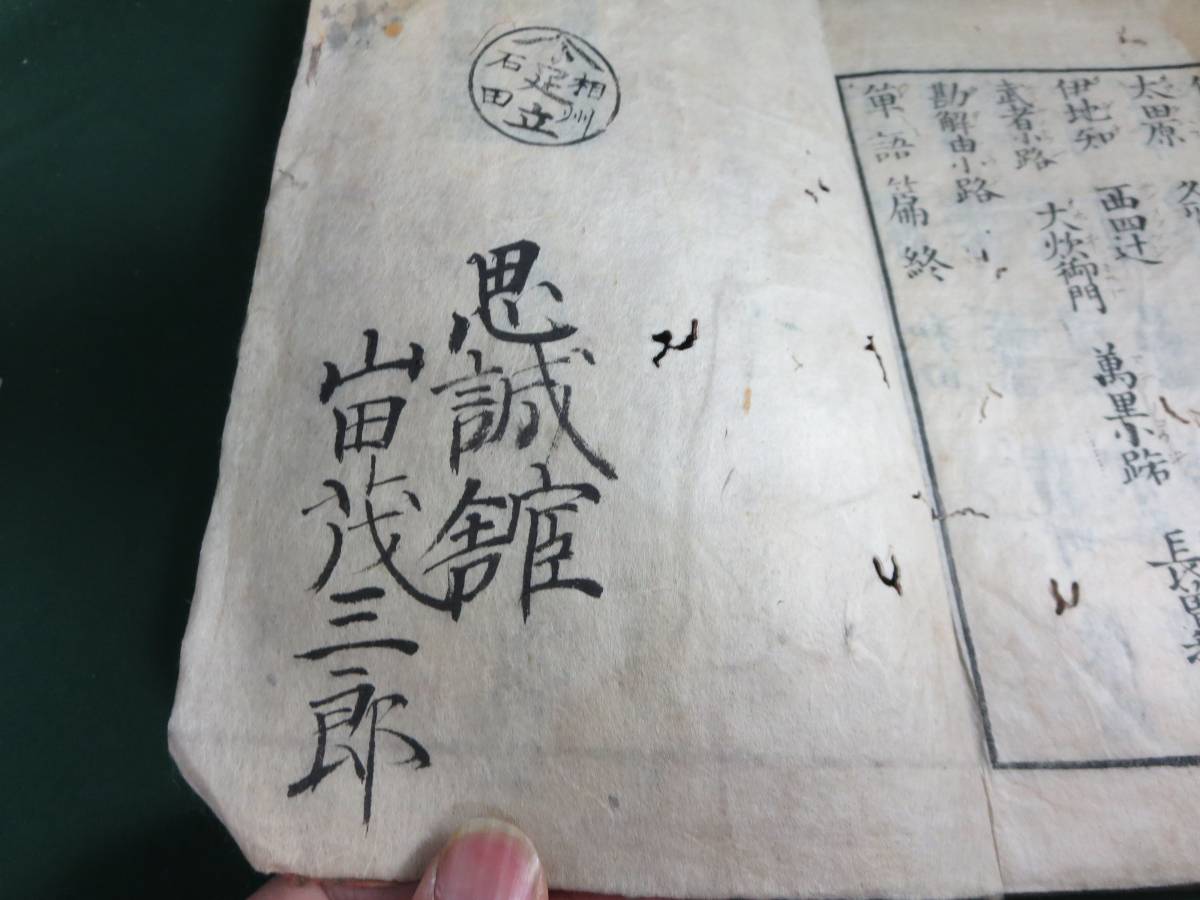 太田原
伊地知 西四辻 萬里小路
武者小路 大炊御門
勘解由小路
單語篇終
相州
石田
思誠舘
山田茂三郎